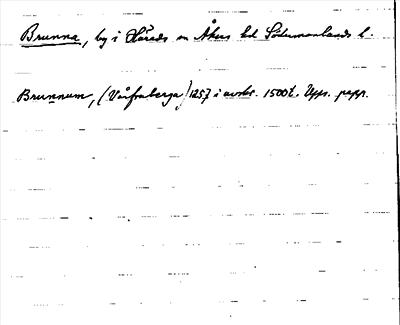 Brunna, by i Härads sn Åkers hd Södermanlands l.
Brunnum, (Vårfruberga) 1257 i avskr. 1500t. Upps. pappr.